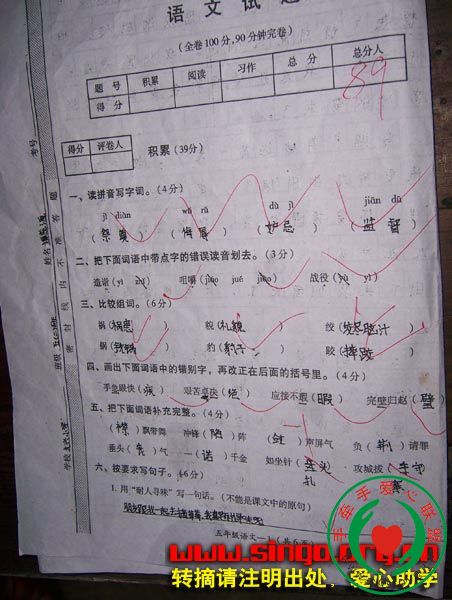 语文试题
(全卷100分,90分钟完卷)
题号 积累 阅读 习作 总分 总分人
得分
89
得分 评卷人
积累(39分)
一、读拼音写字词。(4分)
jì diàn wǔ rǔ dù jì jiān dū
(祭奠) (侮辱) (妒忌) (监督)
二、把下面词语中带点字的错误读音划去。(3分)
造诣(yì zhǐ) 咀嚼(jiáo jué jiáo) 战役(yù yì)
三、比较组词。(6分)
祸(祸患) 貌(礼貌) 绞(绞尽脑汁)
锅(铁锅) 豹(豹子) 胶(
四、画出下面词语中的错别字,再改正在后面的括号里。(4分)
手急眼快(疾) 艰苦卓决(绝) 应接不瑕(暇) 完壁归赵(璧)
五、把下面词语补充完整。(4分)
(襟)飘带舞 冲锋(陷)阵 ( )声屏气 负(荆)请罪
垂头(丧)气 一(诺)千金 如坐针( ) 攻城拔(
六、按要求写句子。(6分)
1.用“耐人寻味”写一句话。(不能是课文中的原句)
五年级语文—1(共6页)
考号
姓名
班级
学校
密封线内不准答题
手牵手爱心联盟
www.singo.org.cn
转摘请注明出处,爱心助学